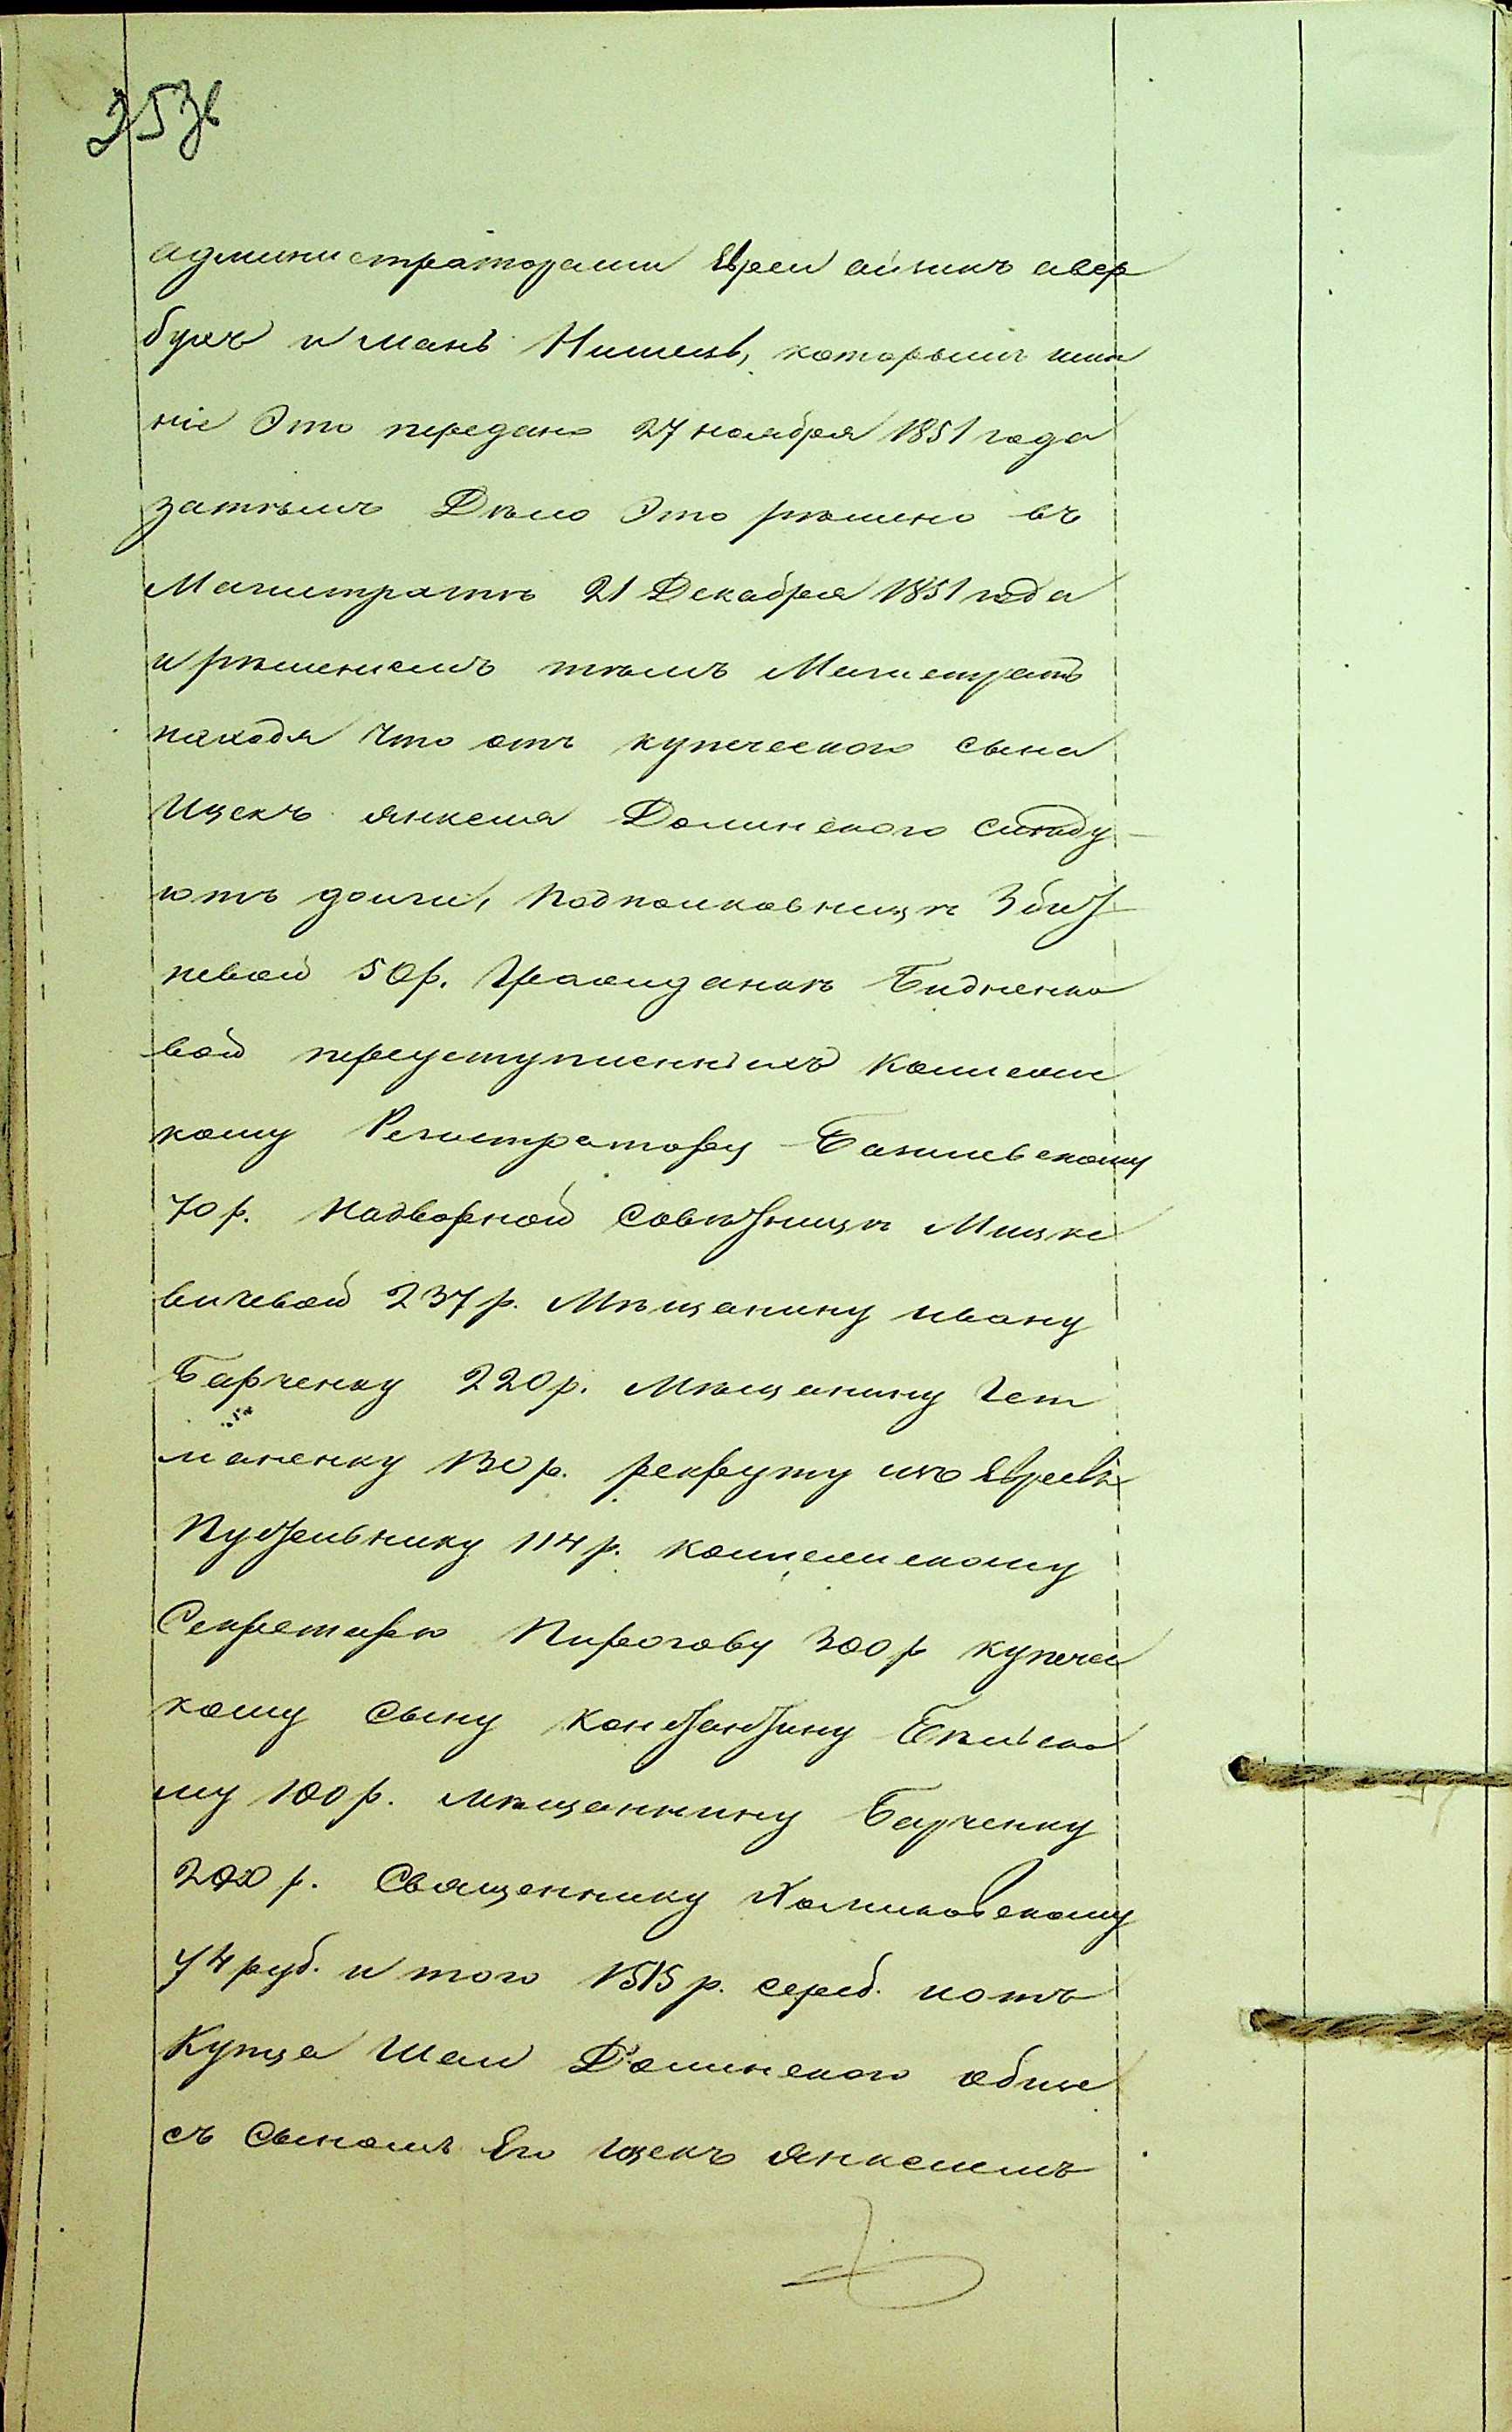 253б
администраторами Евреи айзикъ авер
бухъ и мань Нишецъ, которымъ име
ніе Это передано 27 ноября 1851 года
затѣмъ Дѣло Это рѣшено въ
Магистратѣ 21 Декабря 1851 года
и рѣшеніемъ тѣмъ Магистратъ
находя Что отъ купеческого сына
Ицекъ янкеля Долинского слѣду-
ютъ долги, Подполковницѣ
невой 50 р. Гражданкѣ Бидненко
вой переуступленныхъ Колежс
кому Регистратору Базилевскому
70 р. Надворной Совѣтницѣ Мицке
вичевой 237 р. Мѣщанину ивану
Барченку 220 р. Мѣщанину Гет
маненку 130 р. рекруту изъ Евреевъ
Пудельнику 114 р. колежскому
Секретарю Пирогову 300 р купечес
кому Сыну Константину Бѣльско
му 100 р. мѣщаннину Барченку
200 р. Священнику Холиковскому
74 руб. и того 1515 р. сереб. и отъ
Купца Шаи Долинского обще
съ Сыномъ Его Ицекъ Янкелемъ